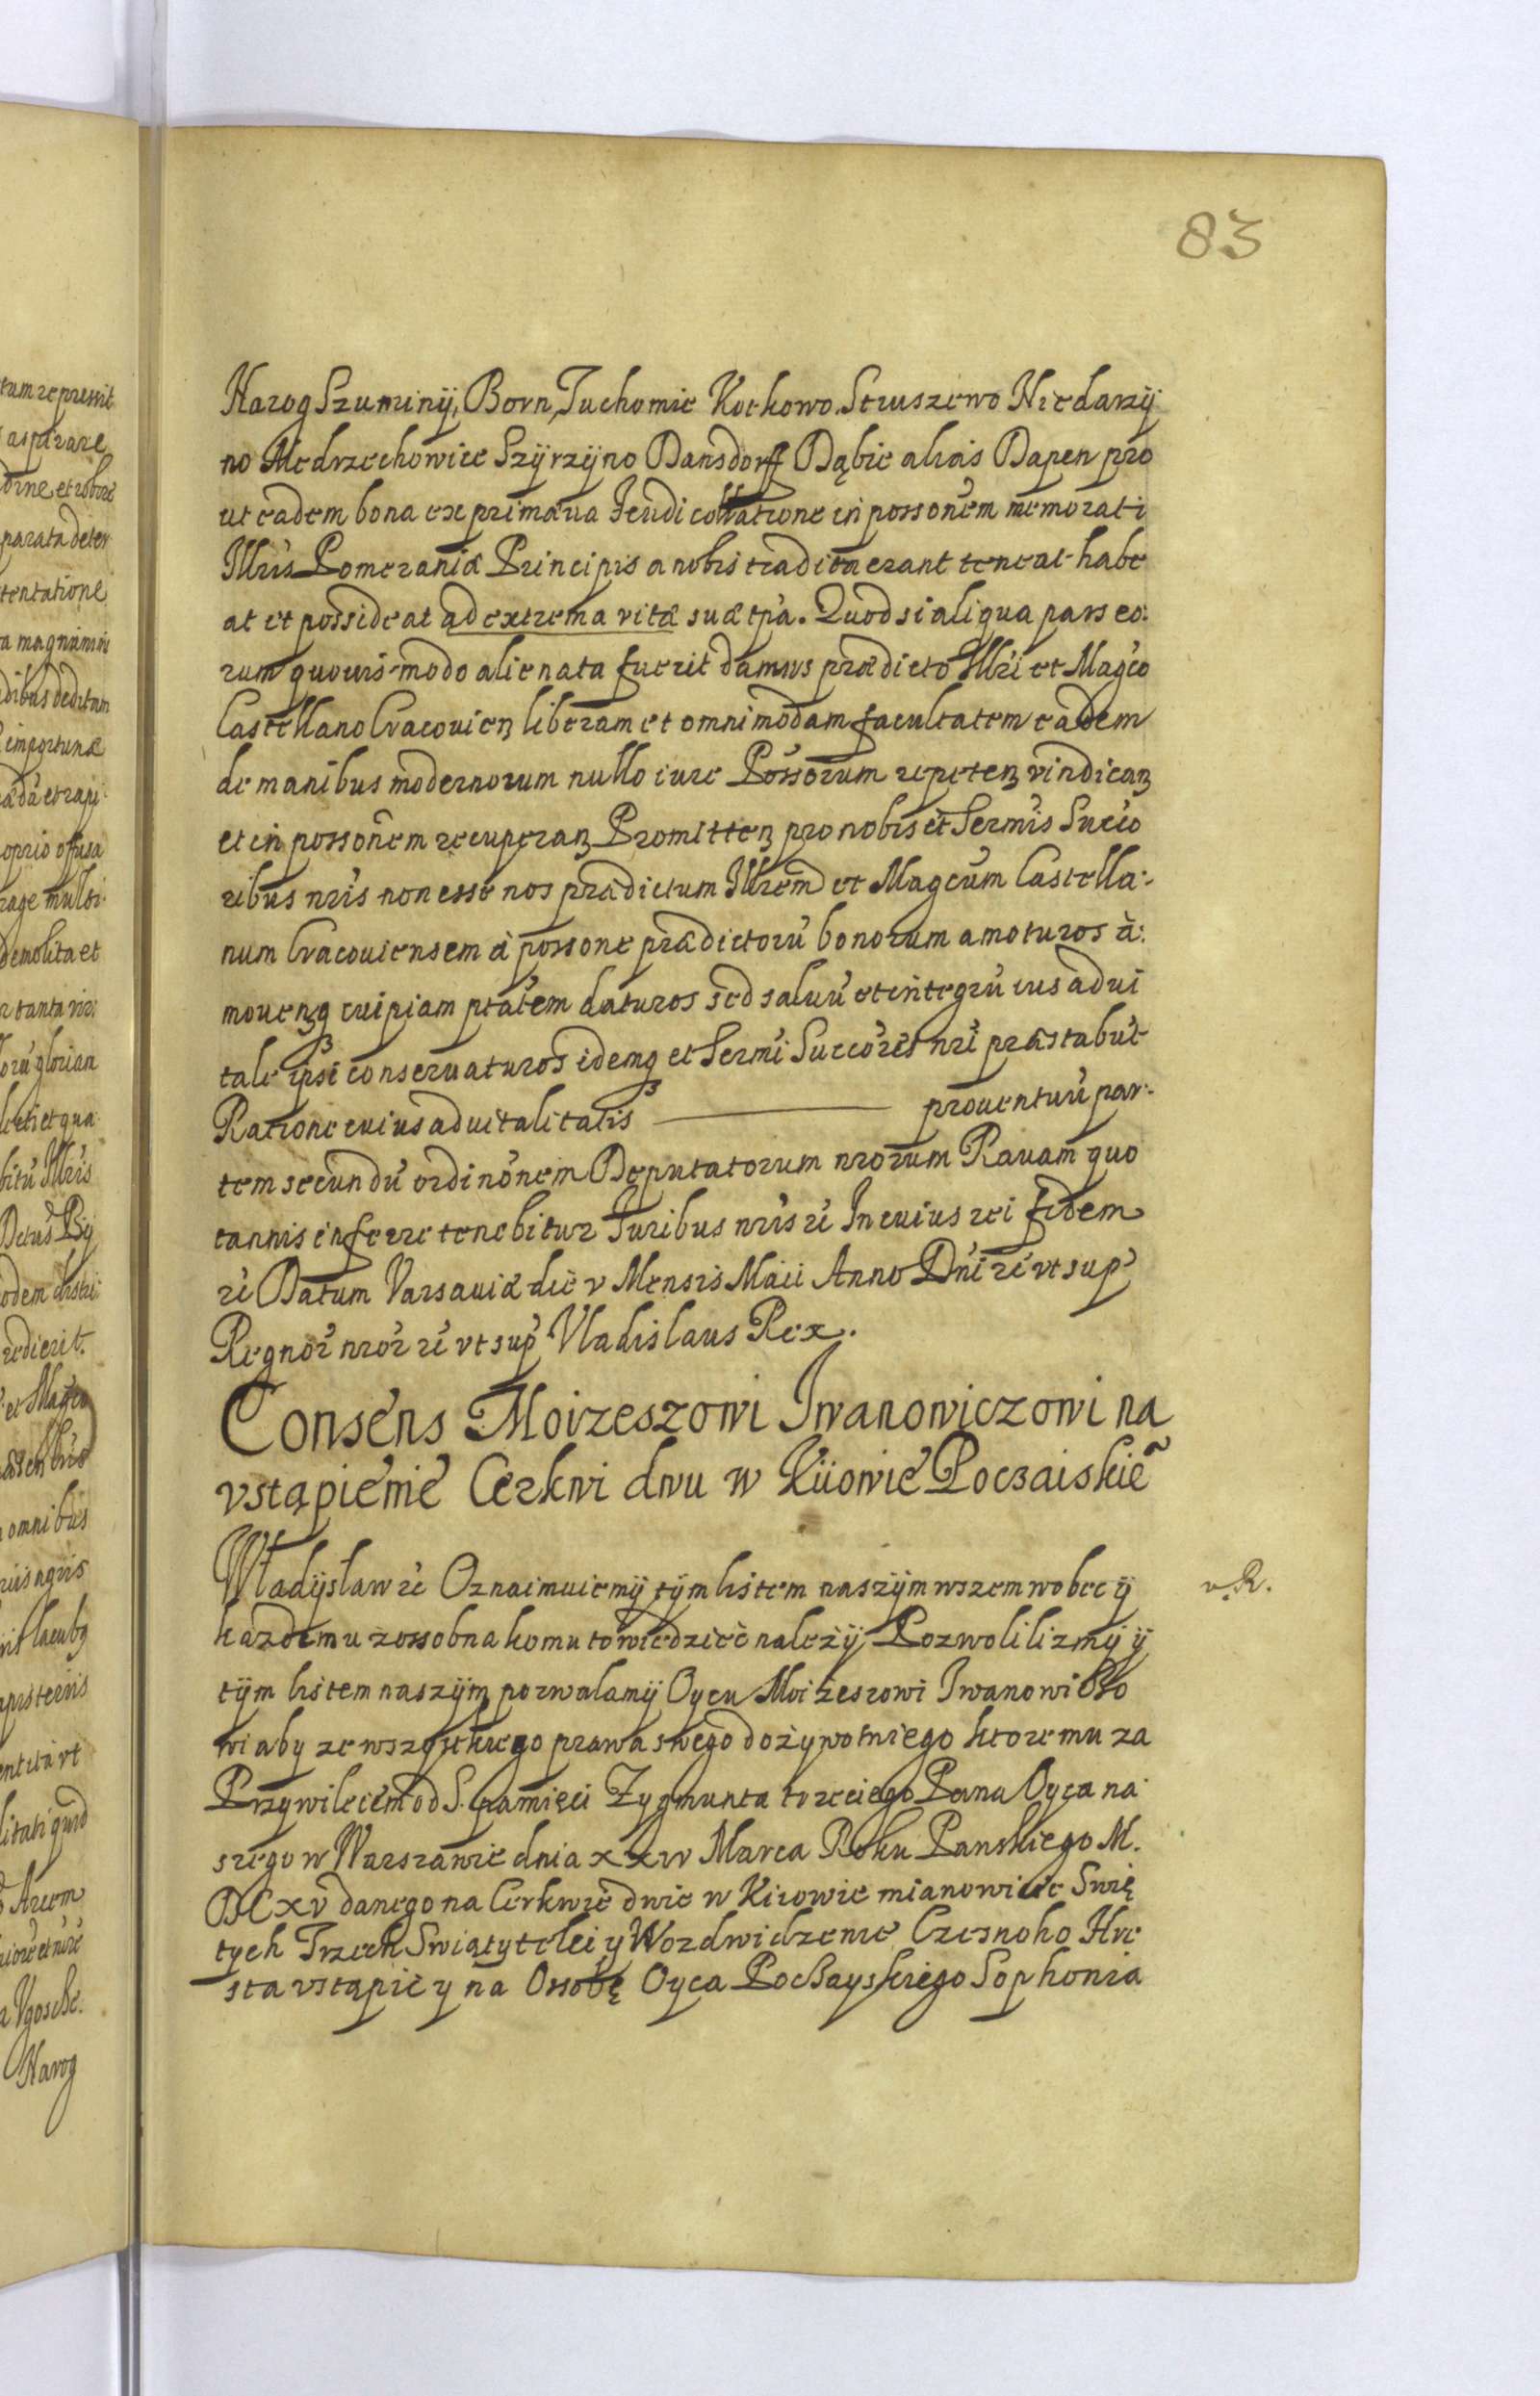 83
Narog Szuminÿ, Born, Tuchomie Kotkowo. Struszewo Niedarzÿ
no Medrzechowice Szÿrzÿno Dansdorff Dąbie alias Dapen pro
ut eadem bona ex primæua feudi collatione in possonem memorati
Illris Pomeraniæ Principis a nobis tradita erant teneat habe
at et possideat ad extrema vitæ suæ tpa. Quod si aliqua pars eo:
rum quouis modo alienata fuerit damus prædicto Illri et Magco
Castellano Cracouien liberam et omnimodam facultatem eadem
de manibus modernorum nullo iure Possorum repeten vindican
et in possonem recuperan Promitten pro nobis et Sermis Succo
ribus nris non esse nos prædictum Illrem et Magcum Castella:
num Cracouiensem à possone prædictorū bonorum amoturos à:
mouenq cuipiam ptatem daturos sed saluū et integrū ius adui
tale ipsi conseruaturos idemq et Sermi Succores nri præstabūt
Ratione cuius aduitalitatis ——— prouentuū par:
tem secundū ordinonem Deputatorum nrorum Rauam quo
tannis inferre tenebitur Juribus nris rc̄ In cuius rei fidem
rc̄ Datum Varsauiæ die v Mensis Maii Anno Dni rc̄ vt sup
Regnor nror rc̄ vt sup Vladislaus Rex.
Consens Moizeszowi Iwanowiczowi na
vstąpienie Cerkwi dwu w Kiiowie Poczaiskiē
Władÿsław rc̄ Oznaimuiemÿ tÿm listem naszÿm wszem wobec ÿ
kazdemu zossobna komu to wiedziec nalezÿ Pozwolilizmÿ ÿ
tÿm listem naszÿm pozwalamÿ Oycu Moizeszowi Iwanowiczo
wi aby ze wszÿstkiego prawa swego dozywotniego ktoremu za
Przywileiem od S. pamięci Zygmunta trzeciego Pana Oyca na
szego w Warszawie dnia xxv Marca Roku Panskiego M.
DCxv danego na Cerkwie dwie w Kiiowie mianowicie Swię
tych Trzech Swiątytelei y Wozdwidzenie Czesnoho Hre
sta vstąpic y na Ossobę Oyca Poczayskiego Sophonia
v. R.
tum repressit
asparare
orne et robore
parata deter
tentatione
a magnanimi
dibus deditam
importunæ
oprio offusa
rage multi
demolita et
r tanta vir:
orū glorian
leti et qua
bitū Illris
odem distri:
redierit.
et Magco
omnibus
riis agris
entia vt
litati quod
Arcem
Narog